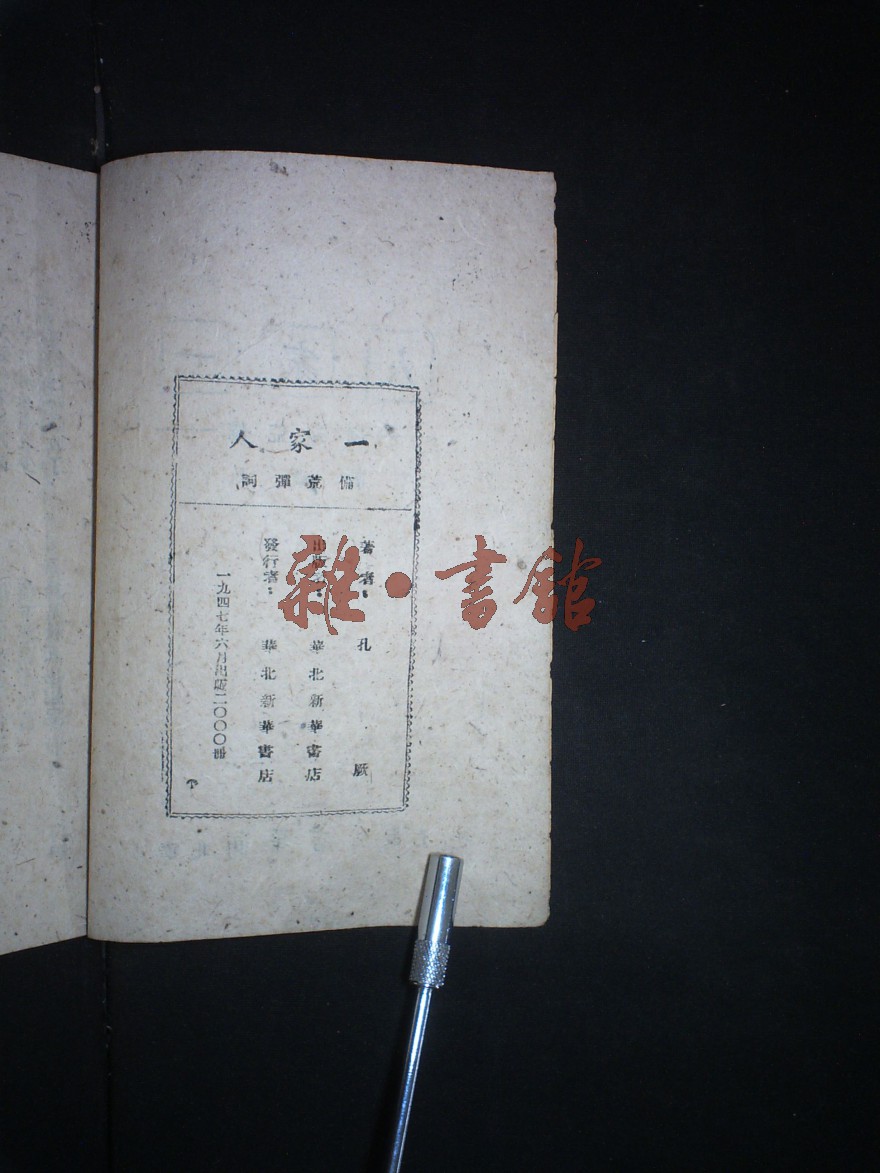 一家人
備荒彈詞
著者：孔厥
出版者：華北新華書店
發行者：華北新華書店
一九四七年六月出版二〇〇〇冊
雜·書館